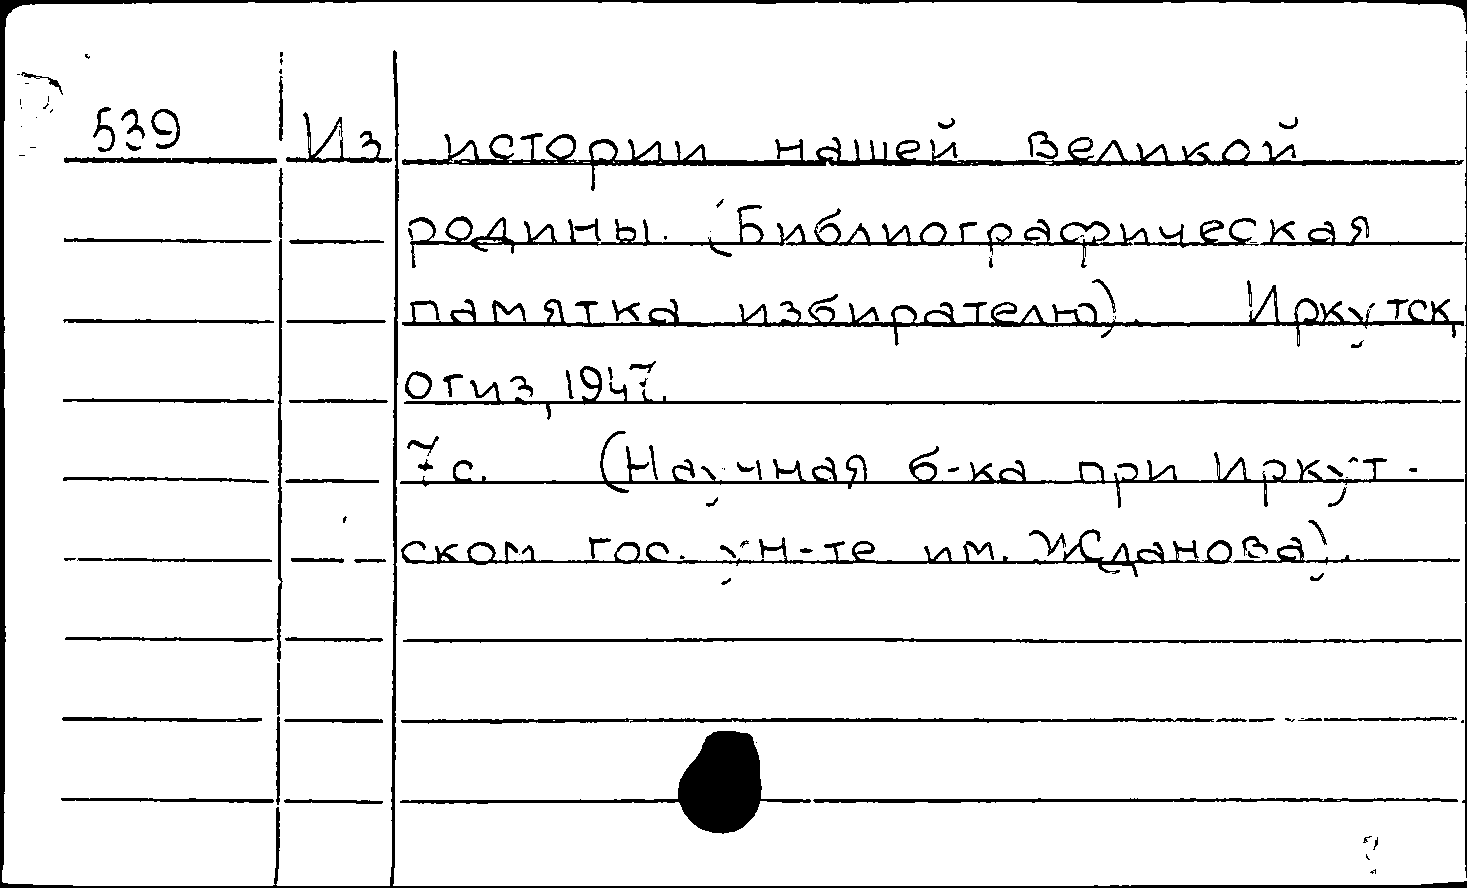 539 Из истории нашей великой
родины. (Библиографическая
памятка избирателю). Иркутск,
огиз, 1947.
7с. (Научная б-ка при Иркут-
ском гос. ун-те им. Жданова).